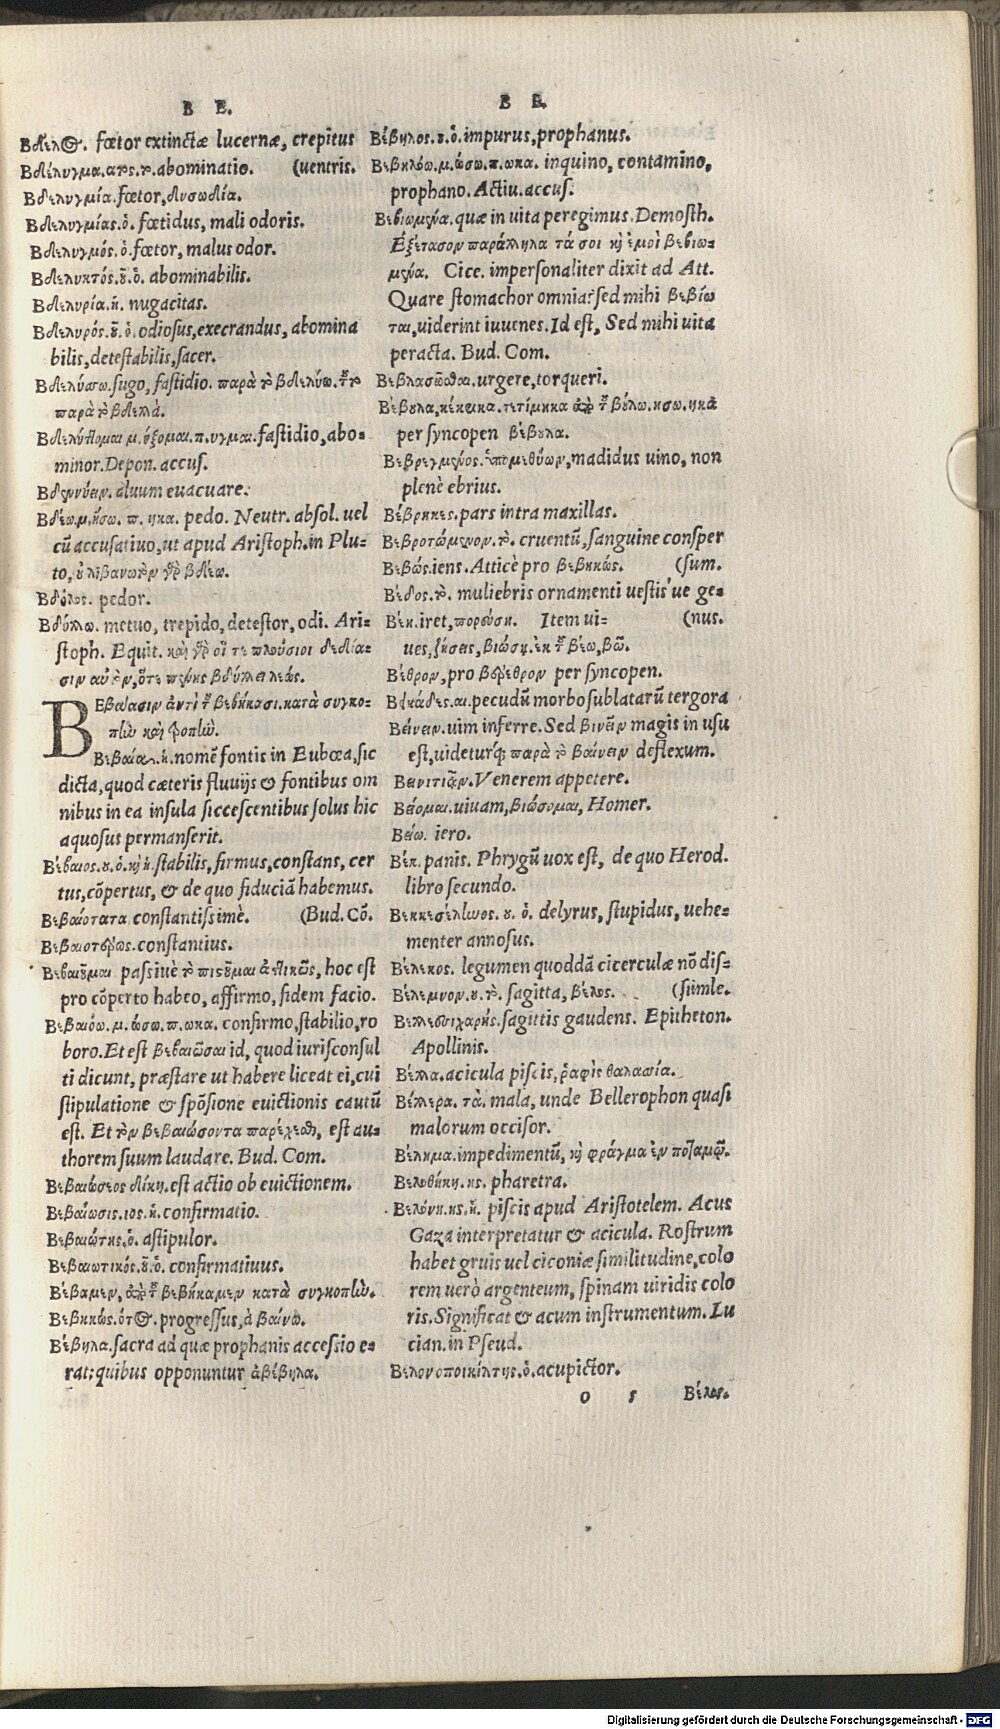 B E.
Βδέλος. fœtor extinctæ lucernæ, crepitus
Βδέλυγμα.ατος.τό.abominatio. (uentris.
Βδελυγμία.fœtor,δυσωδία.
Βδελυγμίας.ὁ. fœtidus, mali odoris.
Βδελυγμός.ὁ.fœtor, malus odor.
Βδελυκτός.οῦ.ὁ. abominabilis.
Βδελυρία.ἡ. nugacitas.
Βδελυρός.οῦ.ὁ.odiosus,execrandus, abomina
bilis,detestabilis,sacer.
Βδελύσσω.sugo, fastidio. παρὰ τὸ βδελύω. ἢ
παρὰ τὸ βδελλά.
Βδελύττομαι μ.ύξομαι.π.υγμαι.fastidio,abo-
minor.Depon.accus.
Βδεννύειν. aluum euacuare.
Βδέω.μ.ήσω. π. ηκα. pedo. Neutr. absol. uel
cū accusatiuo,ut apud Aristoph.in Plu-
to, οὐ λιβανωτὸν γὰρ βδέω.
Βδόλος. pedor.
Βδύλλω. metuo, trepido, detestor, odi. Ari-
stoph. Equit. καὶ γὰρ οἵ τε πλούσιοι δεδίασιν
αὐτὸν,ὅτε πένης βδύλλει λεώς.
ΒΕβαασιν ἀντὶ τοῦ βεβήκασι.κατὰ συγκο-
πὴν καὶ τροπὴν.
Βεβαία.ἡ.nomē fontis in Eubœa,sic
dicta,quod cæteris fluuijs & fontibus om
nibus in ea insula siccescentibus solus hic
aquosus permanserit.
Βέβαιος.ου.ὁ.καὶ ἡ.stabilis,firmus,constans, cer
tus,cōpertus, & de quo fiduciā habemus.
Βεβαιότατα constantissimè. (Bud. Cō.
Βεβαιοτέρως.constantius.
Βεβαιοῦμαι passiuè τὸ πιστοῦμαι ἀττικῶς, hoc est
pro cōperto habeo, affirmo, fidem facio.
Βεβαιόω.μ.ώσω.π.ωκα. confirmo,stabilio,ro
boro.Et est βεβαιῶσαι id, quod iurisconsul
ti dicunt, præstare ut habere liceat ei,cui
stipulatione & spōsione euictionis cautū
est. Et τὸν βεβαιώσοντα παρέχεσθαι, est au-
thorem suum laudare. Bud. Com.
Βεβαιώσεος δίκη.est actio ob euictionem.
Βεβαίωσις.ιος.ἡ.confirmatio.
Βεβαιώτης.ὁ. astipulor.
Βεβαιωτικός.οῦ.ὁ. confirmatiuus.
Βέβαμεν, ἀπὸ τοῦ βεβήκαμεν κατὰ συγκοπὴν.
Βεβηκώς.ότος.progressus,ἀ βαίνω.
Βέβηλα.sacra ad quæ prophanis accessio e-
rat:quibus opponuntur ἀβέβηλα.
B E.
Βέβηλος.ου.ὁ.impurus,prophanus.
Βεβηλόω.μ.ώσω.π.ωκα. inquino, contamino,
prophano. Actiu. accus.
Βεβιωμένα.quæ in uita peregimus.Demosth.
Ἐξέτασον παράλληλα τά σοι καὶ ἐμοὶ βεβιω-
μένα. Cice. impersonaliter dixit ad Att.
Quare stomachor omnia?sed mihi βεβίω
ται,uiderint iuuenes.Id est, Sed mihi uita
peracta. Bud. Com.
Βεβλασῶσθαι.urgere,torqueri.
Βέβουλα,κέκρικα.τετίμηκα ἀπὸ τοῦ βούλω.ησω.ηκα
per syncopen βέβουλα.
Βεβρεγμένος.ὑπομεθύων,madidus uino, non
plenè ebrius.
Βέβρηκες.pars intra maxillas.
Βεβροτώμενον.τό. cruentū,sanguine consper
Βεβώς.iens.Atticè pro βεβηκώς. (sum.
Βέδος.τό. muliebris ornamenti uestis'ue ge-
Βέῃ.iret,πορεύσῃ. Item ui- (nus.
ues,ζήσεις,βιώσῃ.ἐκ τοῦ βέω,βῶ.
Βέθρον,pro βέρεθρον per syncopen.
Βεικάδες.αι.pecudū morbo sublatarū tergora
Βείνειν.uim inferre.Sed βινεῖν magis in usu
est,uideturq́ παρὰ τὸ βαίνειν deflexum.
Βεινιτιᾷν.Venerem appetere.
Βείομαι.uiuam,βιώσομαι, Homer.
Βείω. iero.
Βέκ. panis. Phrygū uox est, de quo Herod.
libro secundo.
Βεκκεσέληνος. ου. ὁ. delyrus, stupidus, uehe-
menter annosus.
Βέλεκος. legumen quoddā cicerculæ nō dis-
Βέλεμνον.ου.τό. sagitta, βέλος. (simile.
Βελλεσσιχαρής.sagittis gaudens. Epitheton.
Apollinis.
Βέλλα.acicula piscis,ῥαφὶς θαλασσία.
Βέλλερα. τά. mala, unde Bellerophon quasi
malorum occisor.
Βέλημα.impedimentū, καὶ φράγμα ἐν ποταμῷ.
Βελοθήκη.ης. pharetra.
Βελόνη.ης.ἡ. piscis apud Aristotelem. Acus
Gaza interpretatur & acicula. Rostrum
habet gruis uel ciconiæ similitudine,colo
rem uerò argenteum, spinam uiridis colo
ris.Significat & acum instrumentum.Lu
cian.in Pseud.
Βελονοποικίλτης.ὁ.acupictor.
o 5 Βέλος.
Digitalisierung gefördert durch die Deutsche Forschungsgemeinschaft - DFG